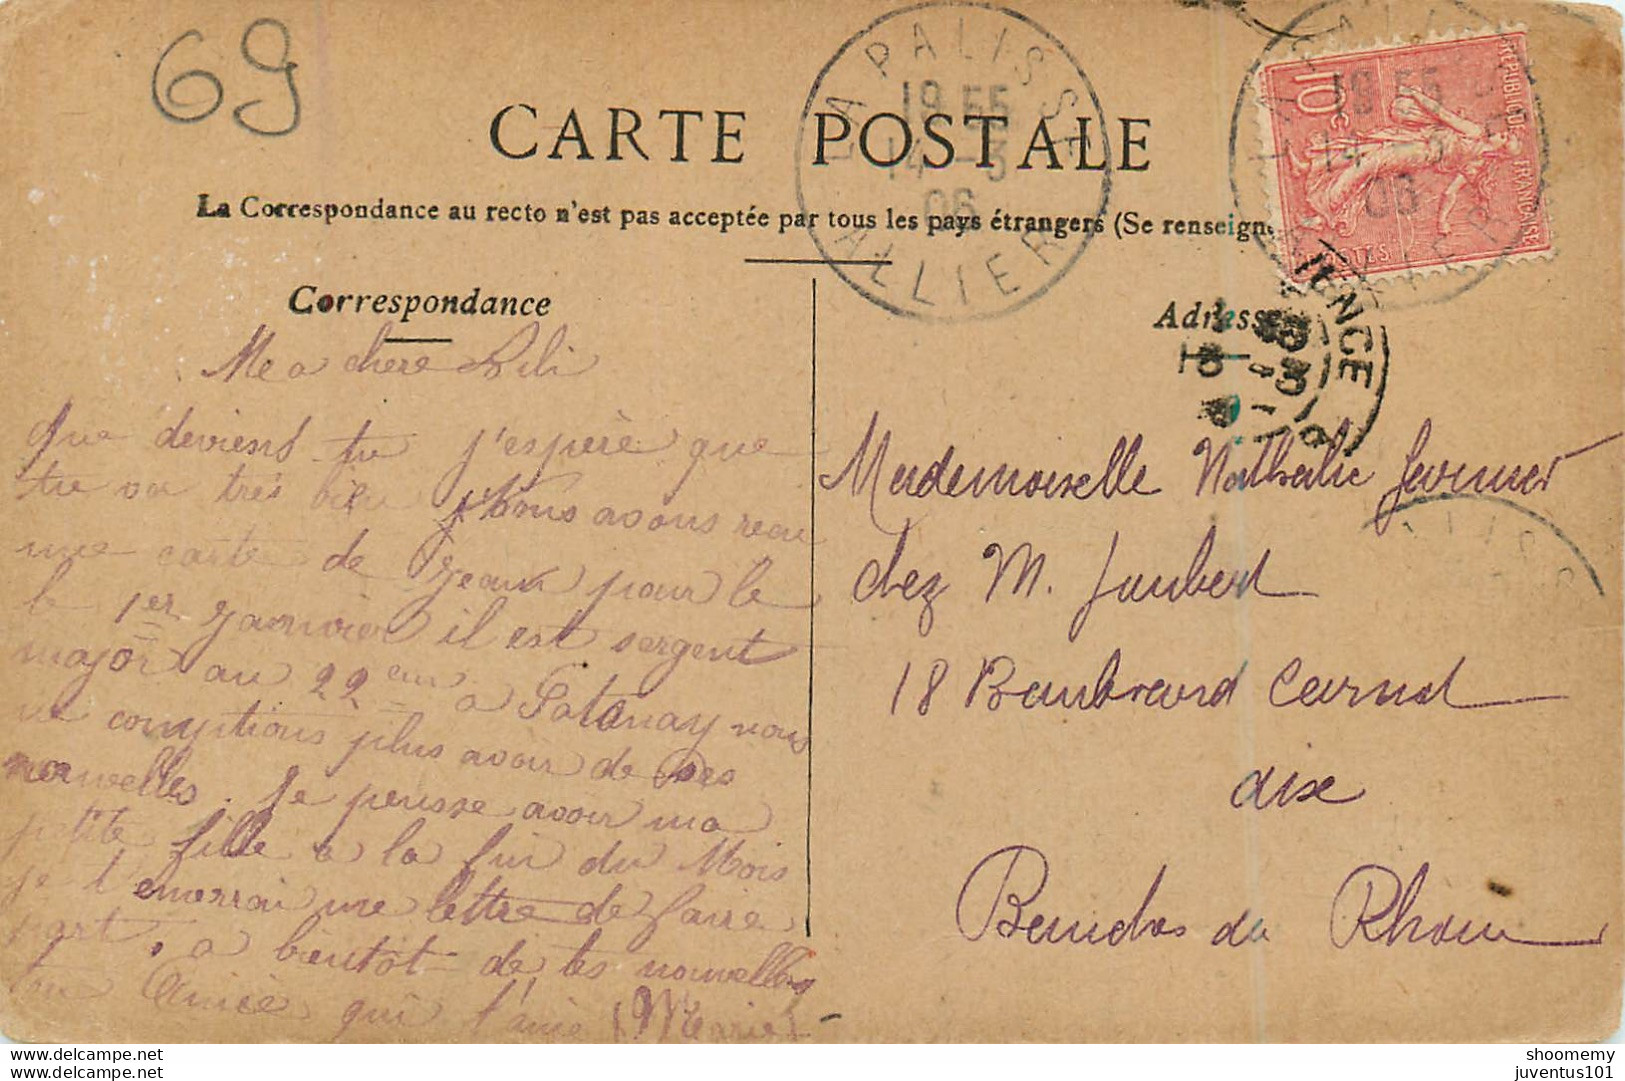 69
CARTE POSTALE
La Correspondance au recto n'est pas acceptée par tous les pays étrangers (Se renseign
LA PALISSE
19 55
14 -3
06
ALLIER
10c
REPUBLIQUE FRANÇAISE
POSTES
19 55
14 3
06
Correspondance
Adresse
Ma chere Lili
que deviens tu j'espère que
tu va très bien Nous avons recu
une carte de Jean pour le
le 1er janvier il est sergent
major au 22em a nous
ne comptions plus avoir de ses
nouvelles. Je pense avoir ma
petite fille a la fin du Mois
je t'enverrai une lettre de faire
part, a bientôt de tes nouvelles
ton Amie qui t'aime Marie
Mademoiselle Nathalie
chez M. Jaubert
18 Boulevard Carnot
aix
Bouches du Rhone
shoomemy
www.delcampe.net
juventus101